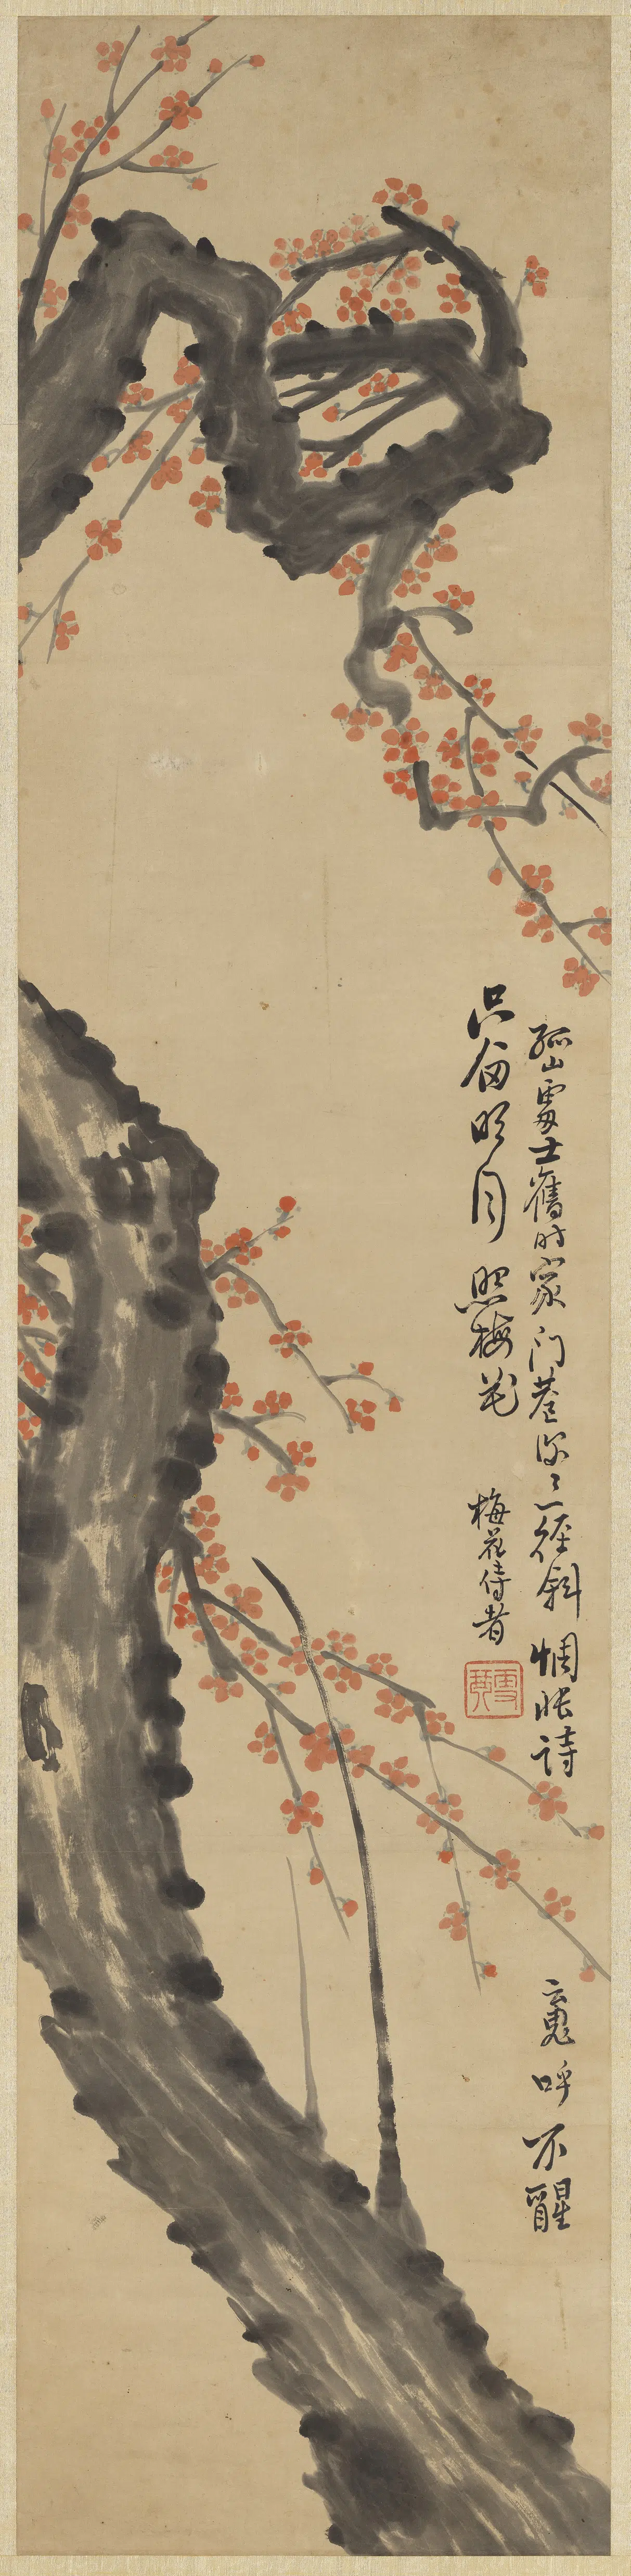 孤山處士舊時家門巷深〻一徑斜惆悵詩魂呼不醒
只留明月照梅花
梅花侍者